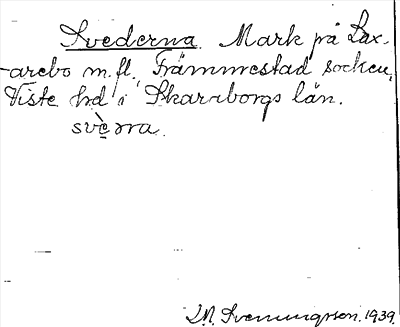 Svederna. Mark på Lax-
arebo m.fl., Främmestad socken,
Viste hd i Skaraborgs län.
svè̤ɹna.
J.N. Svenungsson. 1939.